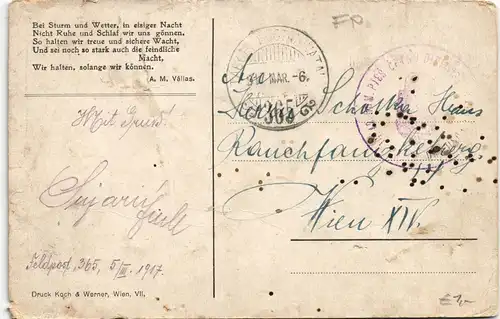 Bei Sturm und Wetter, in eisiger Nacht
Nicht Ruhe und Schlaf wir uns gönnen.
So halten wir treue und sichere Wacht,
Und sei noch so stark auch die feindliche
Macht,
Wir halten, solange wir können.
A. M. Véllas.
Mit Gruß!
Feldpost 365, 5/III. 1917
Druck Koch & Werner, Wien, VII.
FP
MAR.-6.
365
An
Herrn Schotka Hans
Rauchfangkehrerg.
Wien XIV.
£1,-